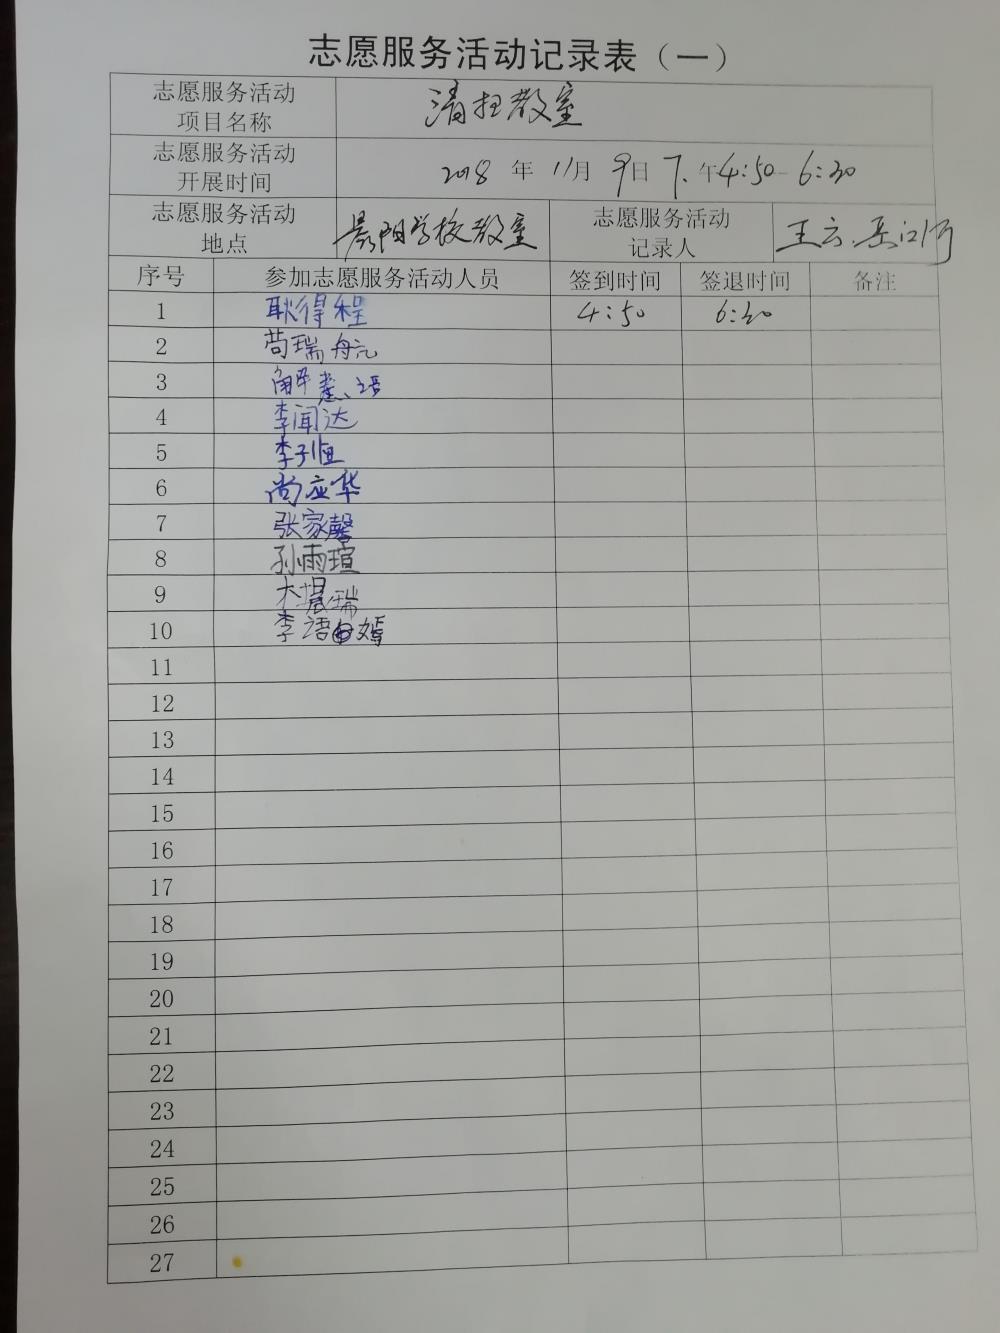 志愿服务活动记录表（一）
志愿服务活动
项目名称
清扫教室
志愿服务活动
开展时间
2018 年 11月 9日 下午4:50-6:30
志愿服务活动
地点
晨阳学校教室
志愿服务活动
记录人
王云、
序号 参加志愿服务活动人员 签到时间 签退时间 备注
1 耿得程 4:50 6:30
2 苟瑞航
3 解蕙语
4 李闻达
5 李子恒
6 尚应华
7 张家馨
8 孙雨瑄
9 瑞
10 李语嫣
11
12
13
14
15
16
17
18
19
20
21
22
23
24
25
26
27